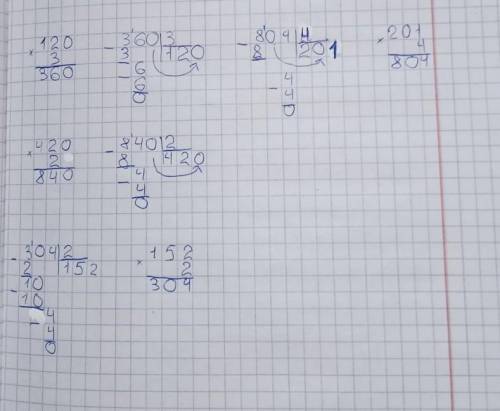 × 120
3
360
- 3'60 | 3
3 | 120
- 6
6
0
- 8'04 | 4
8 | 201
- 4
4
0
× 201
4
804
× 420
2
840
- 8'40 | 2
8 | 420
- 4
4
0
- 3'04 | 2
2 | 152
- 10
10
- 4
4
0
× 152
2
304